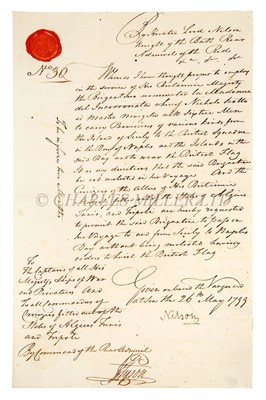 By Horatio Lord Nelson
Knight of the Bath Rear
Admiral of the Red
&c &c &c
No. 30.
Whereas I have thought proper to employ
in the service of His Britannic Majesty
the Brigantine
whereof Nicola
is Master with Sixteen Men
to carry Provisions of various kinds from
the Island of Sicily to the British Squadron
in the Bay of Naples and the Islands in the
said Bay and to wear the British Flag
It is my direction that the said Brigantine
be not molested in her Voyage And the
Cruizers of the Allies of His Britannic
Majesty
Tunis, and Tripoli are hereby requested
to permit the said Brigantine to Pass on
her Voyage to and from Sicily to Naples
Bay without being molested having
orders to hoist the British Flag
CHARLES MILLER LTD
To
The Captains of all His
Majestys Ships of War
and Privateers And
To all Commanders of
Cruizers fitted out of the
States of Algiers Tunis
and Tripoli
Given on board the Vanguard
at Sea the 26th May 1799
Nelson
By Command of the Rear Admiral